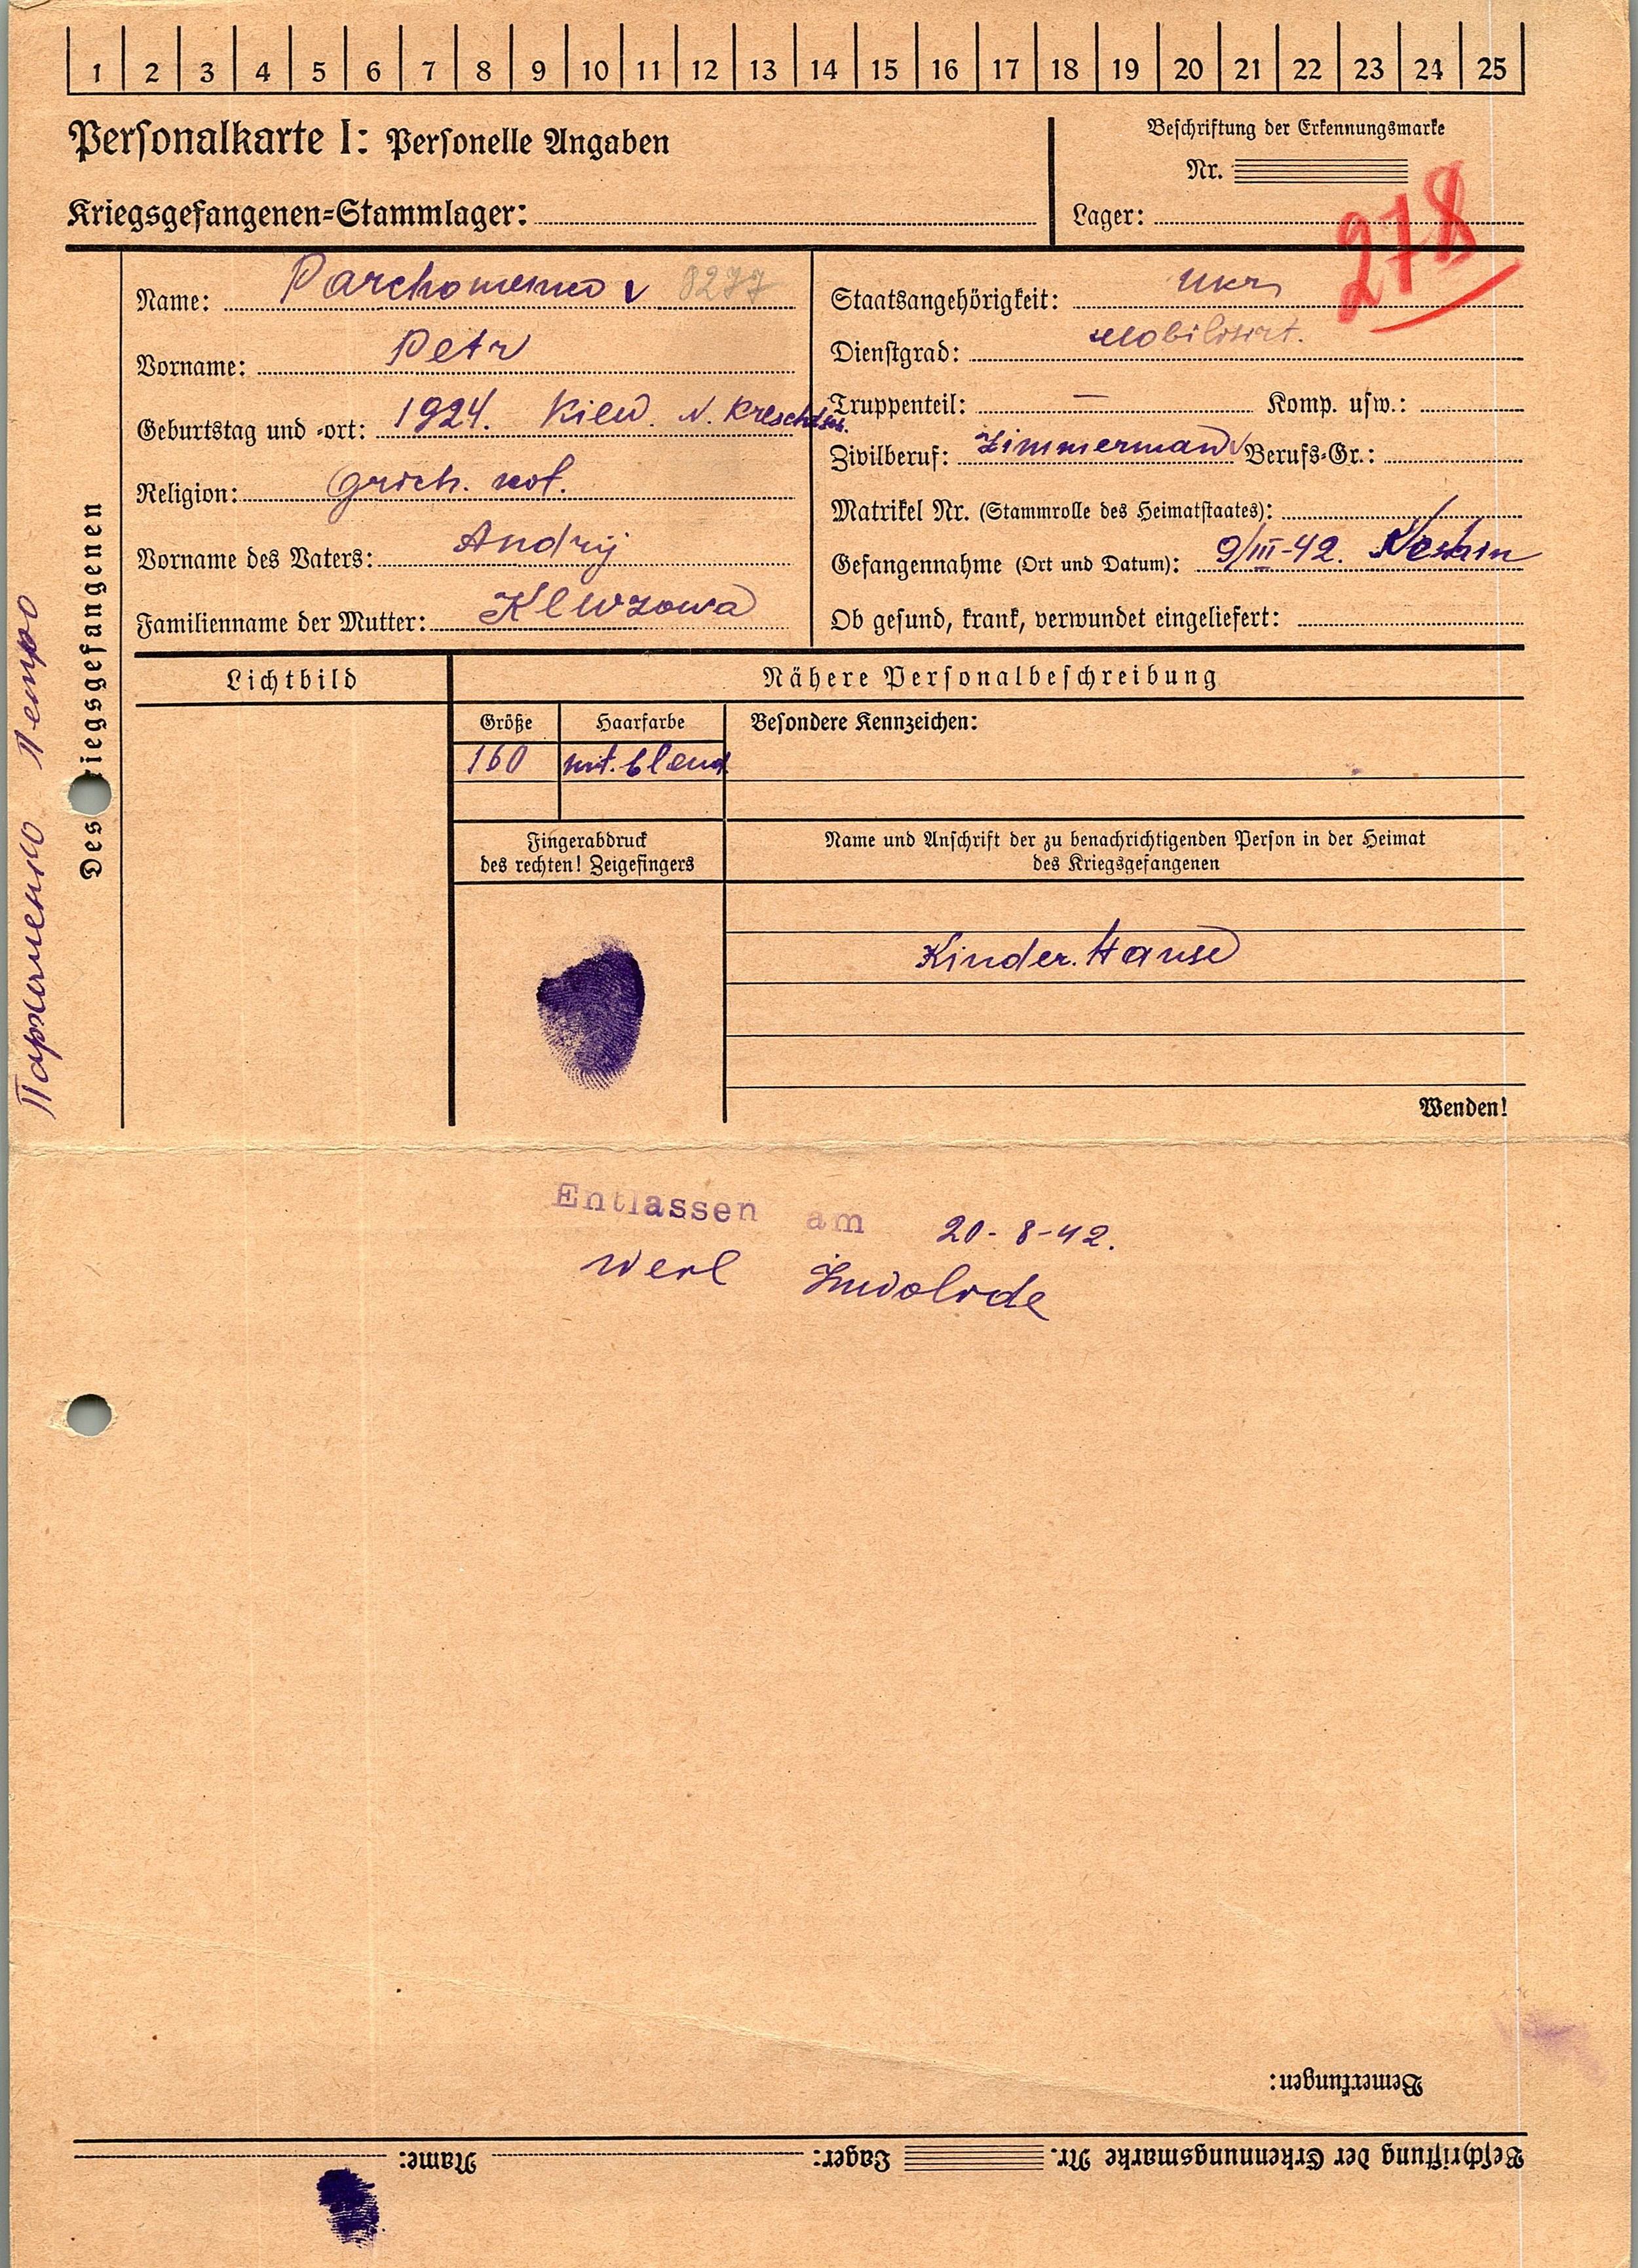 1 2 3 4 5 6 7 8 9 10 11 12 13 14 15 16 17 18 19 20 21 22 23 24 25
Personalkarte I: Personelle Angaben
Kriegsgefangenen-Stammlager:
Beschriftung der Erkennungsmarke
Nr.
Lager:
278
Des Kriegsgefangenen
Пархоменко Петро
Name: Parchomenko 8277
Vorname: Petr
Geburtstag und -ort: 1924. Kiew. N.
Religion: grich.
Vorname des Vaters: Andrij
Familienname der Mutter: Klewzowa
Staatsangehörigkeit: Ukr
Dienstgrad: Mobilisirt.
Truppenteil: — Komp. usw.:
Zivilberuf: Zimmerman Berufs-Gr.:
Matrikel Nr. (Stammrolle des Heimatstaates):
Gefangennahme (Ort und Datum): 9/III-42.
Ob gesund, krank, verwundet eingeliefert:
Lichtbild
Nähere Personalbeschreibung
Größe Haarfarbe Besondere Kennzeichen:
160 mit. blond
Fingerabdruck
des rechten! Zeigefingers
Name und Anschrift der zu benachrichtigenden Person in der Heimat
des Kriegsgefangenen
Kinder. Hause
Wenden!
Entlassen am 20-8-42.
werl Inwolide
Bemerkungen:
Beschriftung der Erkennungsmarke Nr. Lager: Name: